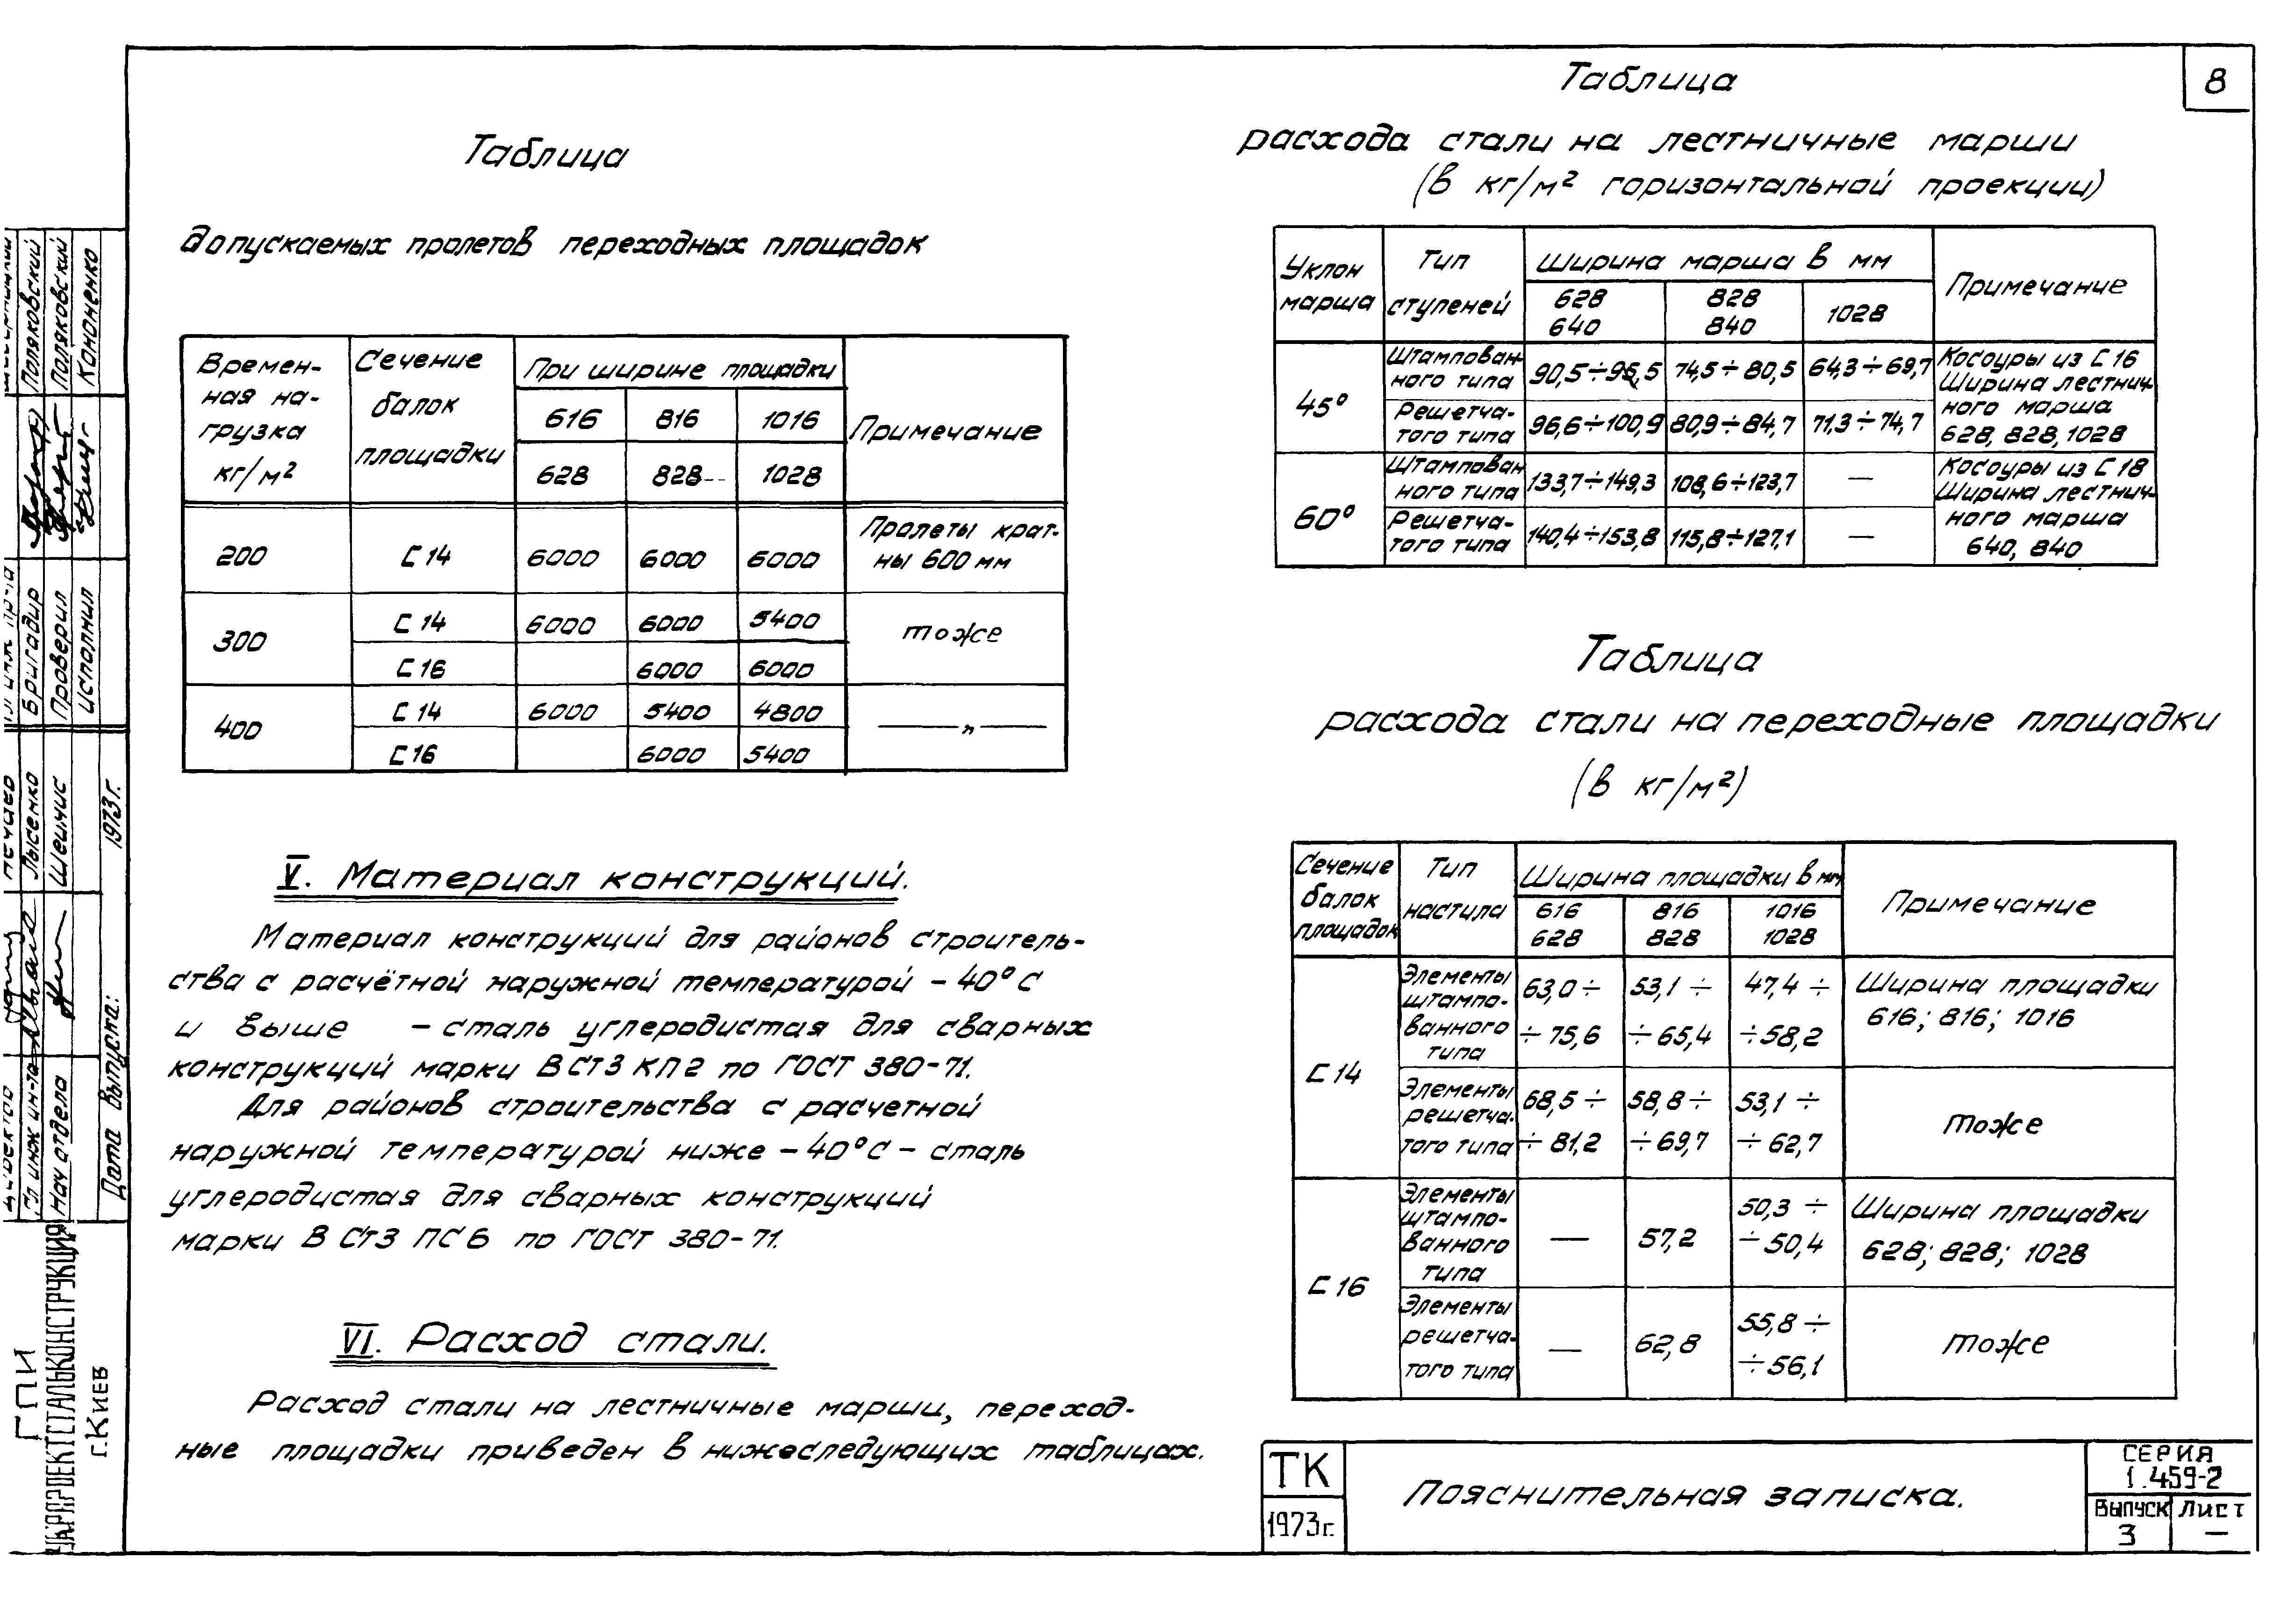 8
Таблица
допускаемых пролетов переходных площадок
Времен-
ная на-
грузка
кг/м²
Сечение
балок
площадки
При ширине площадки
616 816 1016
628 828 1028
Примечание
200 [14 6000 6000 6000 Пролеты крат-
ны 600 мм
300 [14 6000 6000 5400 тоже
[16 6000 6000
400 [14 6000 5400 4800 — „ —
[16 6000 5400
V. Материал конструкций.
Материал конструкций для районов строитель-
ства с расчётной наружной температурой -40°С
и выше - сталь углеродистая для сварных
конструкций марки ВСт3 КП2 по ГОСТ 380-71.
Для районов строительства с расчетной
наружной температурой ниже -40°С - сталь
углеродистая для сварных конструкций
марки В Ст3 ПС6 по ГОСТ 380-71.
VI. Расход стали.
Расход стали на лестничные марши, переход-
ные площадки приведен в нижеследующих таблицах.
Таблица
расхода стали на лестничные марши
(в кг/м² горизонтальной проекции)
Уклон
марша
Тип
ступеней
Ширина марша в мм
628
640
828
840
1028
Примечание
45°
Штампован-
ного типа
90,5÷95,5 74,5÷80,5 64,3÷69,7
Решетча-
того типа
96,6÷100,9 80,9÷84,7 71,3÷74,7
Косоуры из [16
Ширина лестнич-
ного марша
628, 828, 1028
60°
Штампован
ного типа
133,7÷149,3 108,6÷123,7 —
Решетча-
того типа
140,4÷153,8 115,8÷127,1 —
Косоуры из [18
Ширина лестнич-
ного марша
640, 840
Таблица
расхода стали на переходные площадки
(в кг/м²)
Сечение
балок
площадок
Тип
настила
Ширина площадки в мм
616
628
816
828
1016
1028
Примечание
[14
Элементы
штампо-
ванного
типа
63,0÷
÷75,6
53,1÷
÷65,4
47,4÷
÷58,2
Ширина площадки
616; 816; 1016
Элементы
решетча-
того типа
68,5÷
÷81,2
58,8÷
÷69,7
53,1÷
÷62,7
тоже
[16
Элементы
штампо-
ванного
типа
—
57,2
50,3÷
÷50,4
Ширина площадки
628; 828; 1028
Элементы
решетча-
того типа
—
62,8
55,8÷
÷56,1
тоже
ТК
1973г.
Пояснительная записка.
СЕРИЯ
1.459-2
Выпуск
3
Лист
—
Бригадир Поляковский
Проверил Поляковский
исполнил Кононенко
Гл инж ин-та Лысенко
Нач отдела Шейнис
Дата выпуска: 1973г.
ГПИ
УКРПРОЕКТСТАЛЬКОНСТРУКЦИЯ
г. Киев